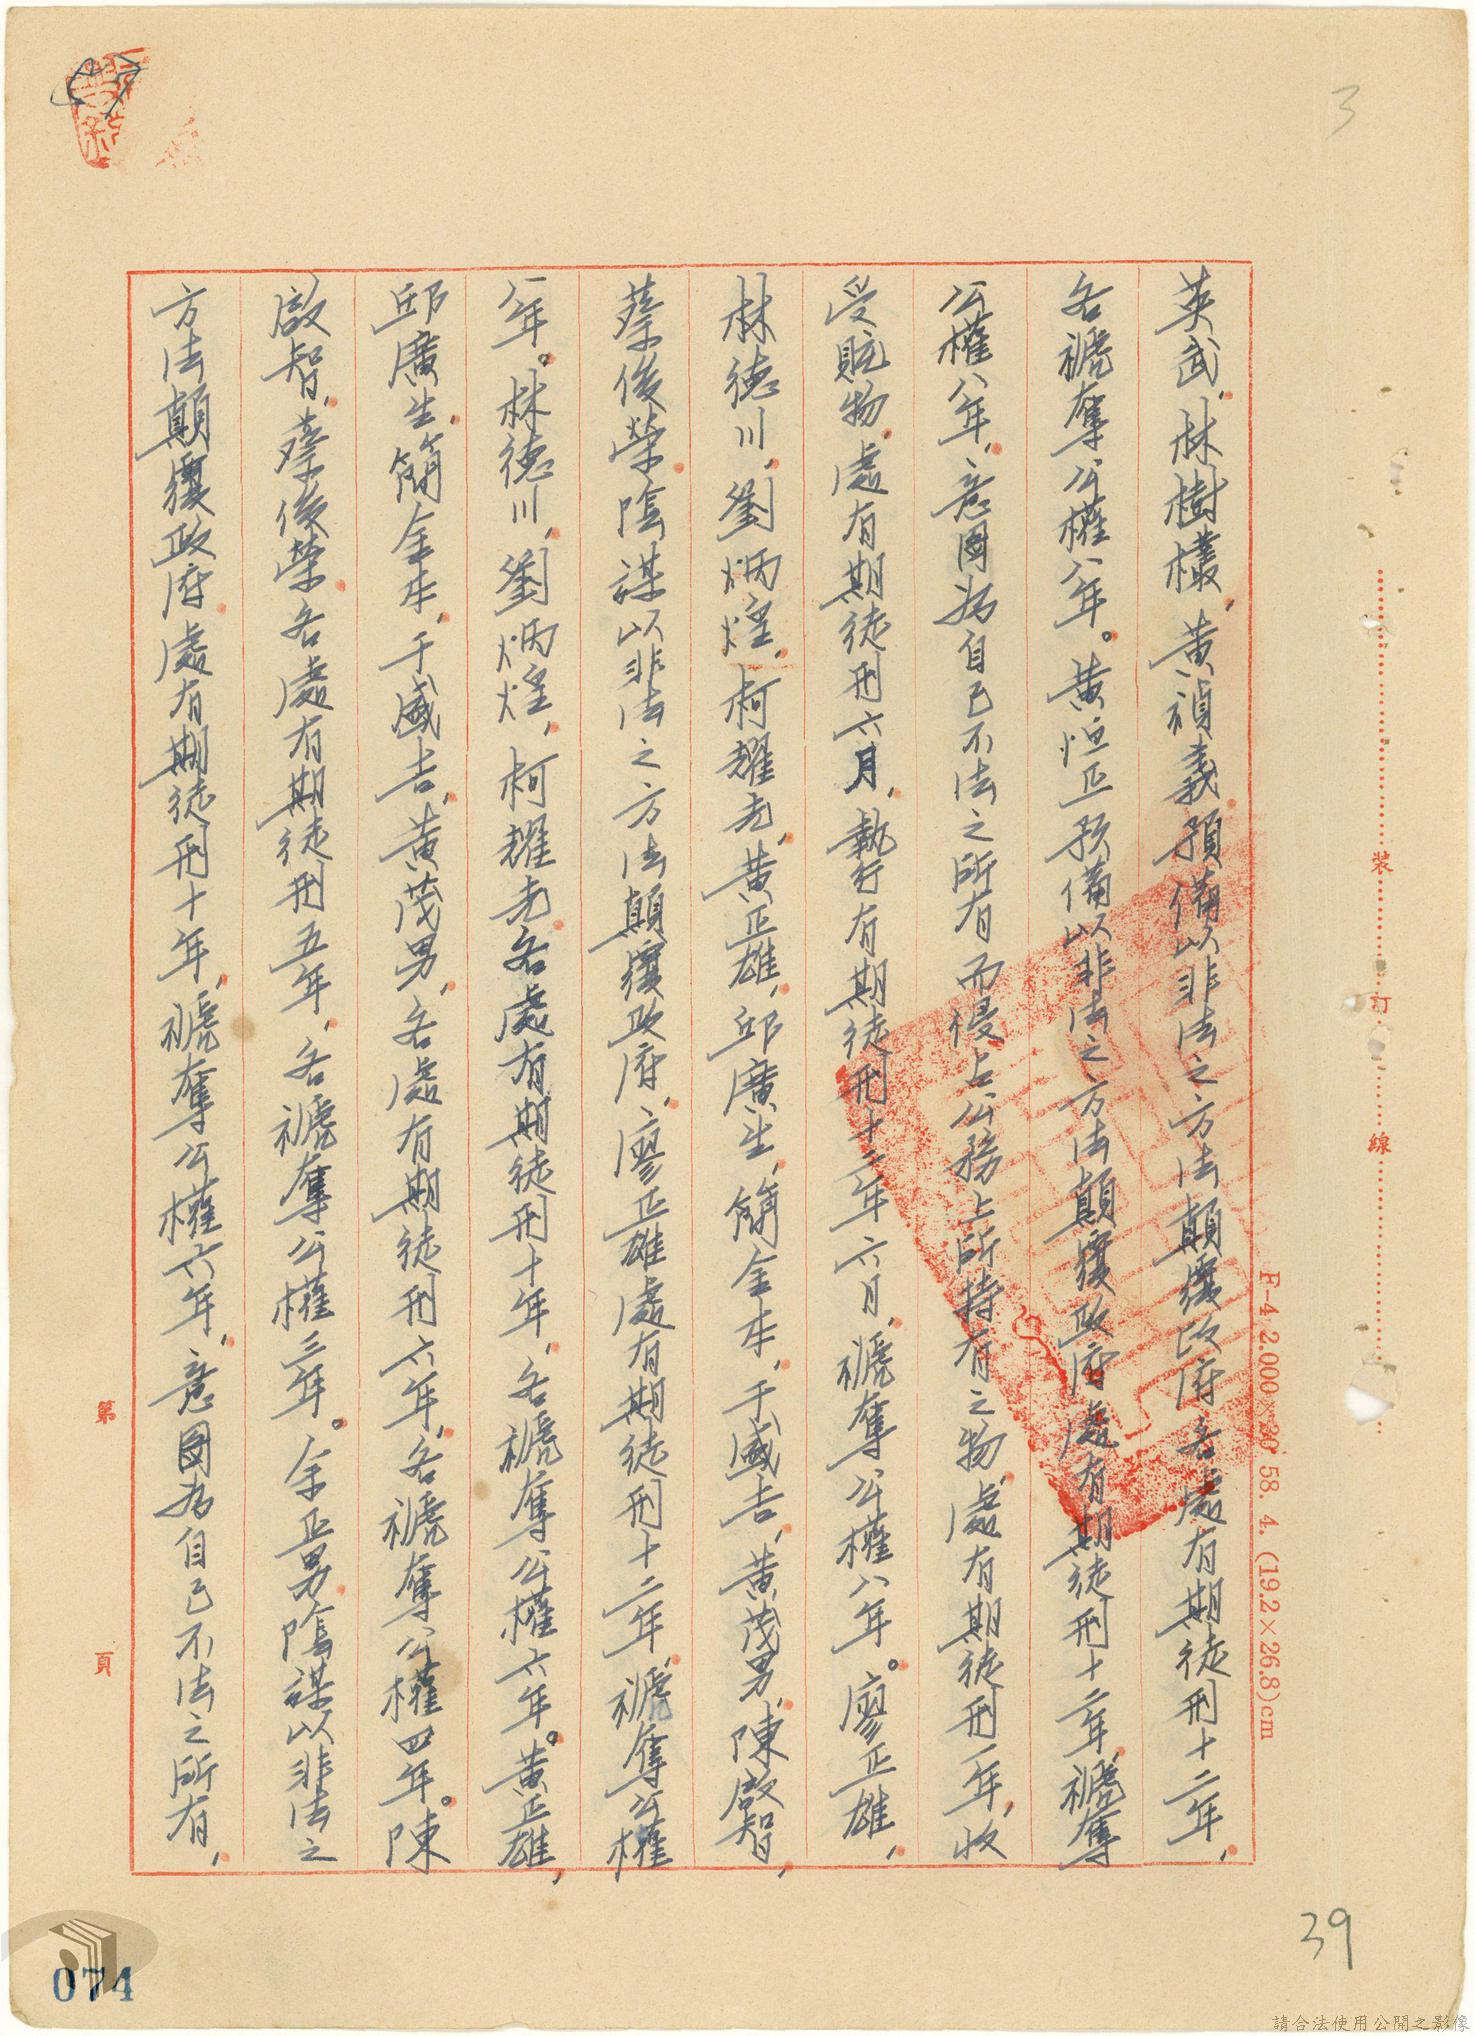 3
英武，林樹欉，黃禎義預備以非法之方法顛覆政府各處有期徒刑十二年，
各褫奪公權八年。黃恒正預備以非法之方法顛覆政府處有期徒刑十二年，褫奪
公權八年，意圖為自己不法之所有而侵占公務上所持有之物，處有期徒刑一年，收
受贓物，處有期徒刑六月，執行有期徒刑十二年六月，褫奪公權八年。廖正雄，
林德川，劉炳煌，柯耀光，黃正雄，邱廣生，簡金本，于盛吉，黃茂男，陳啟智，
蔡俊榮陰謀以非法之方法顛覆政府，廖正雄處有期徒刑十二年，褫奪公權
八年。林德川，劉炳煌，柯耀光各處有期徒刑十年，各褫奪公權六年。黃正雄，
邱廣生，簡金本，于盛吉，黃茂男，各處有期徒刑六年，各褫奪公權四年。陳
啟智，蔡俊榮，各處有期徒刑五年，各褫奪公權三年。余正男陰謀以非法之
方法顛覆政府，處有期徒刑十年，褫奪公權六年，意圖為自己不法之所有，
裝訂線
F-4 2.000×30 58. 4. (19.2×26.8)cm
第 頁
39
074
請合法使用公開之影像